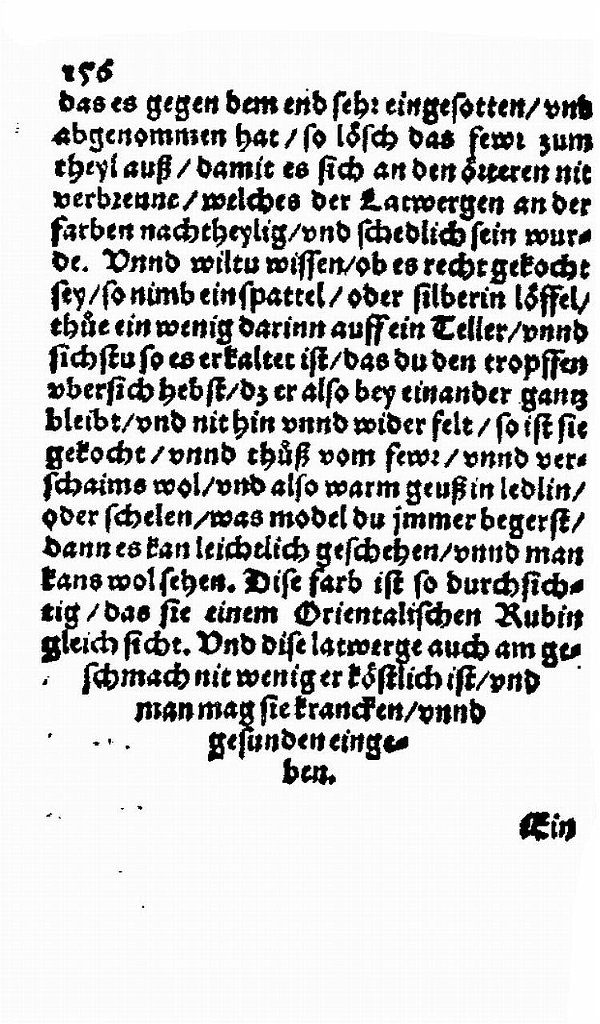 156
das es gegen dem end sehr eingesotten/ vnd
abgenommen hat / so lösch das fewr zum
theyl auß / damit es sich an den örteren nit
verbrenne / welches der Latwergen an der
farben nachtheylig/vnd schedlich sein wur-
de. Vnnd wiltu wissen/ob es recht gekocht
sey/so nimb ein spattel / oder silberin löffel/
thůe ein wenig darinn auff ein Teller/vnnd
sichstu so es erkaltet ist/das du den tropffen
vbersich hebst/dz er also bey einander gantz
bleibt/vnd nit hin vnnd wider felt / so ist sie
gekocht / vnnd thůß vom fewr / vnnd ver-
schaims wol/vnd also warm geuß in ledlin/
oder schelen/was model du jmmer begerst/
dann es kan leichtlich geschehen/vnnd man
kans wol sehen. Dise farb ist so durchsich-
tig / das sie einem Orientalischen Rubin
gleich sicht. Vnd dise latwerge auch am ge-
schmach nit weniger köstlich ist/vnd
man mag sie krancken/vnnd
gesunden einge-
ben.
Ein